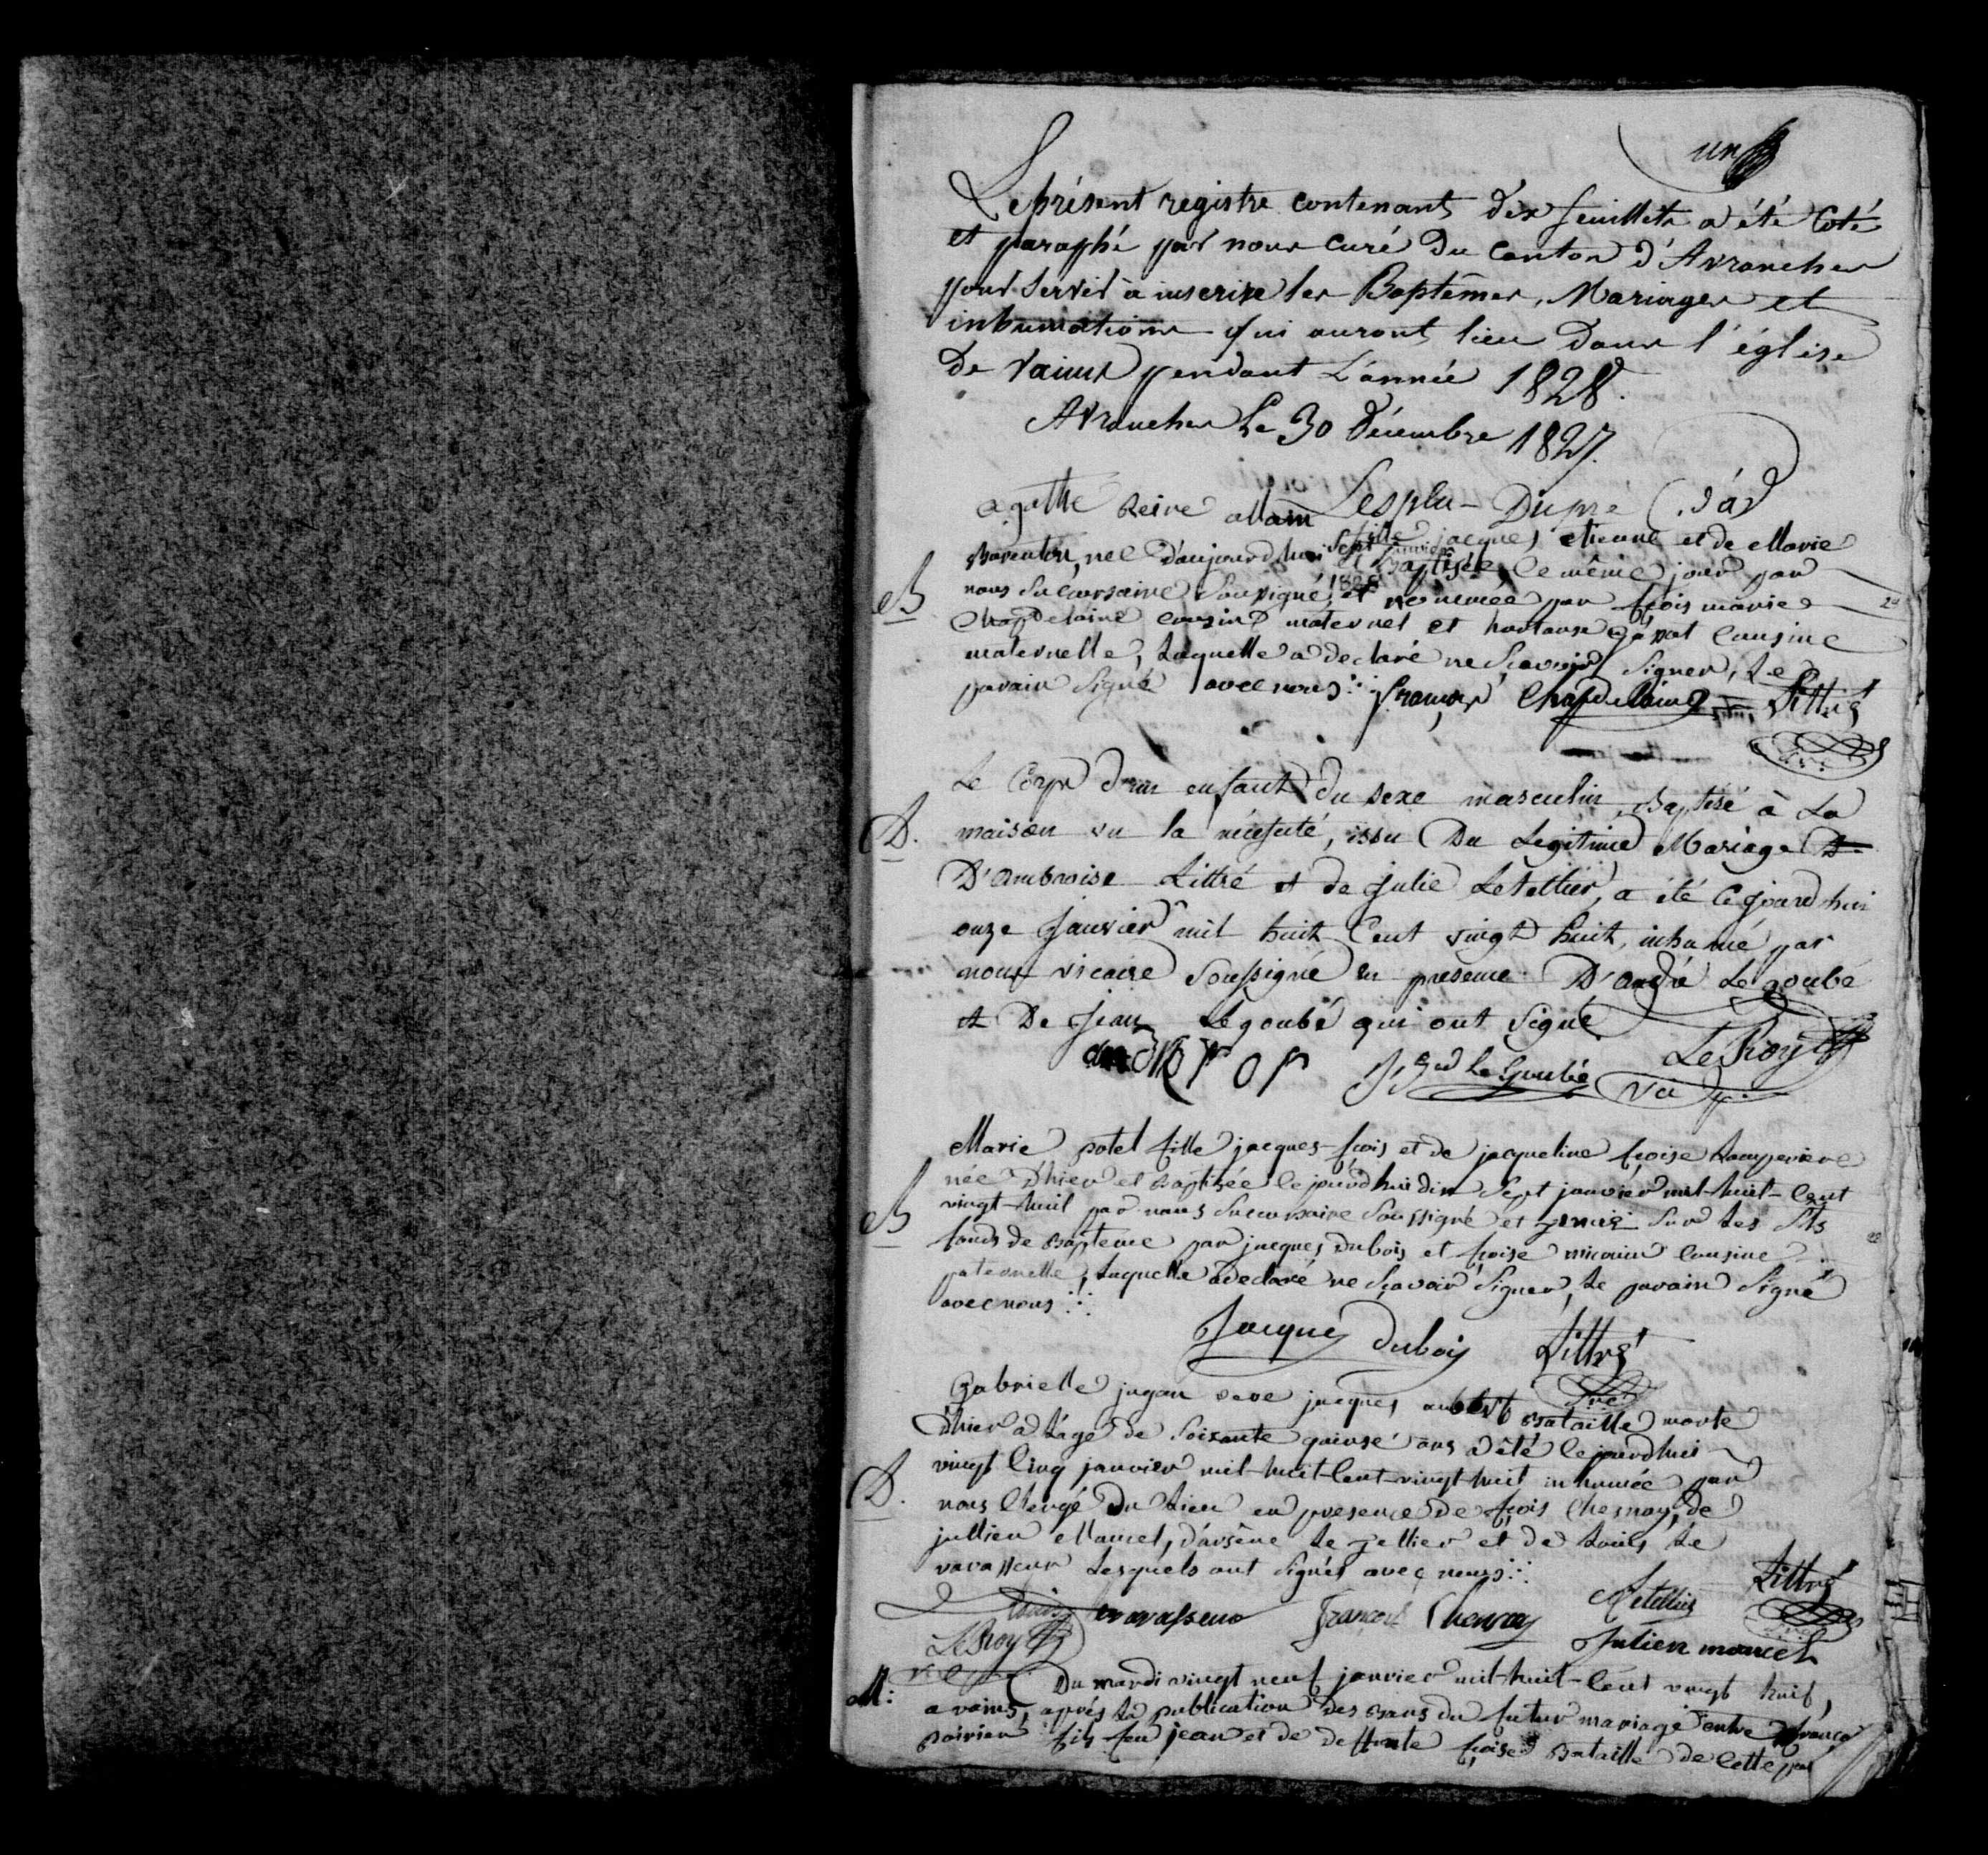 un
Le présent registre contenant dix feuillets a été coté
et paraphé par nous curé du canton d'Avranches
pour servir à inscrire les Baptêmes, Mariages et
inhumations qui auront lieu dans l'église
de Vains pendant L'année 1828.
Avranches Le 30 Décembre 1827.
Lesplu-Dupré
agathe Reine allain fille jacques etienne et de Marie
Barenton, née d'aujourdhui sept janvier 1828 et Baptisée le même jour par
B nous Succursaire Soussigné, et nommée par fçois marie
Chapdelaine cousin maternel et hortanse cousine
maternelle, Laquelle a declaré ne Scavoir Signer, Le
parain Signé avec nous: françois Chapdelaine Littré
Le Corps d'un enfant du sexe masculin, Baptisé à La
D. maison vu la nécessité, issu Du Legitime Mariage D
D'ambroise Littré et de Julie Letellier, a été Cejourdhui
onze Janvier mil huit Cent vingt huit, inhumé par
nous vicaire Soussigné en presence D'andré Legoubé
et De Jean Legoubé qui ont Signé
LeRoy
Le Goubé Vic
Marie potel fille jacques-fçois et de jacqueline fçoise
née d'hier et Baptisée Cejourdhui dix Sept janvier mil-huit-Cent
B vingt-huit par nous Succursaire Soussigné et Sur Les Sts
fonds de Bapteme par jacques dubois et fçoise cousine
paternelle, Laquelle a declaré ne Scavoir Signer, Le parain Signé
avec nous
Jacques dubois Littré
Gabrielle jugan veve jacques aubert Bataille morte
d'hier a L'age de Soixante quinse ans a été Cejourdhui
vingt Cinq janvier mil-huit-Cent-vingt-huit inhumée par
D. nous Clergé du Lieu en presence de fçois Chesnay, de
jullien Marcel, d'arsène Le tellier et de Louis Le
vavasseur Lesquels ont Signés avec nous
Littré
Louis levavasseur François Chesnay Letellier
LeRoy Julien marcel
M: Du mardi vingt neuf janvier mil-huit-Cent vingt huit,
a vains, après La publication des Bans du futur mariage entre
poirier fils feu jean et de deffunte fçoise Bataille de Cette